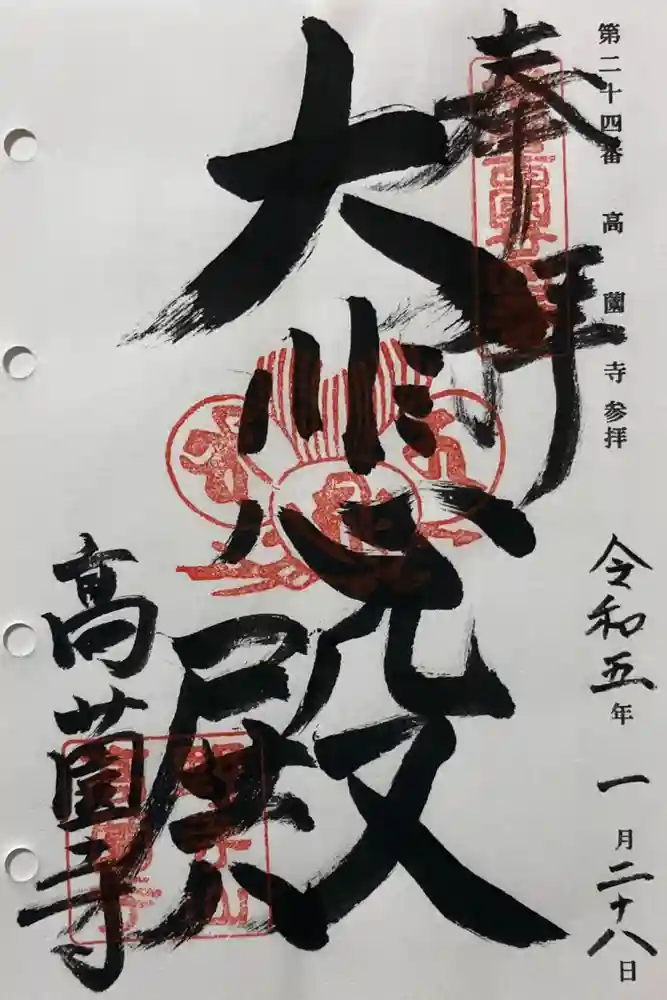 第二十四番 高薗寺 参拝
令和五年 一月二十八日
奉拝
大悲殿
高薗寺